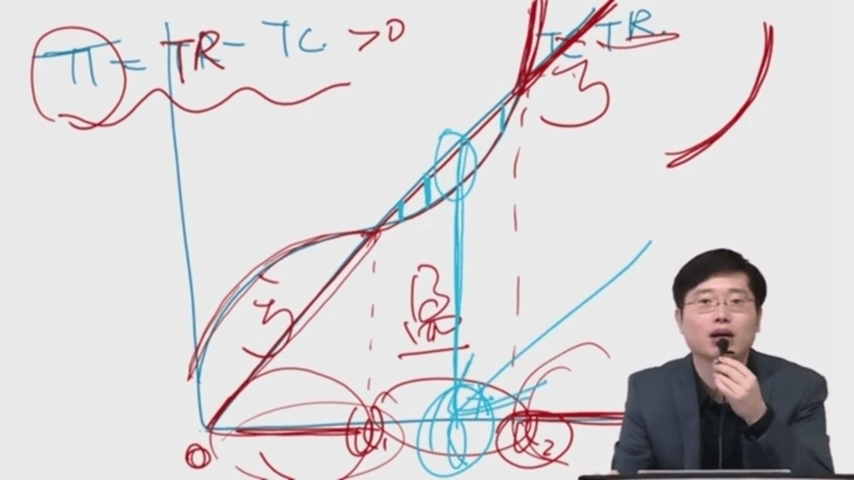 π = TR - TC > 0
TC TR
亏
亏
盈
O Q1 Q Q2